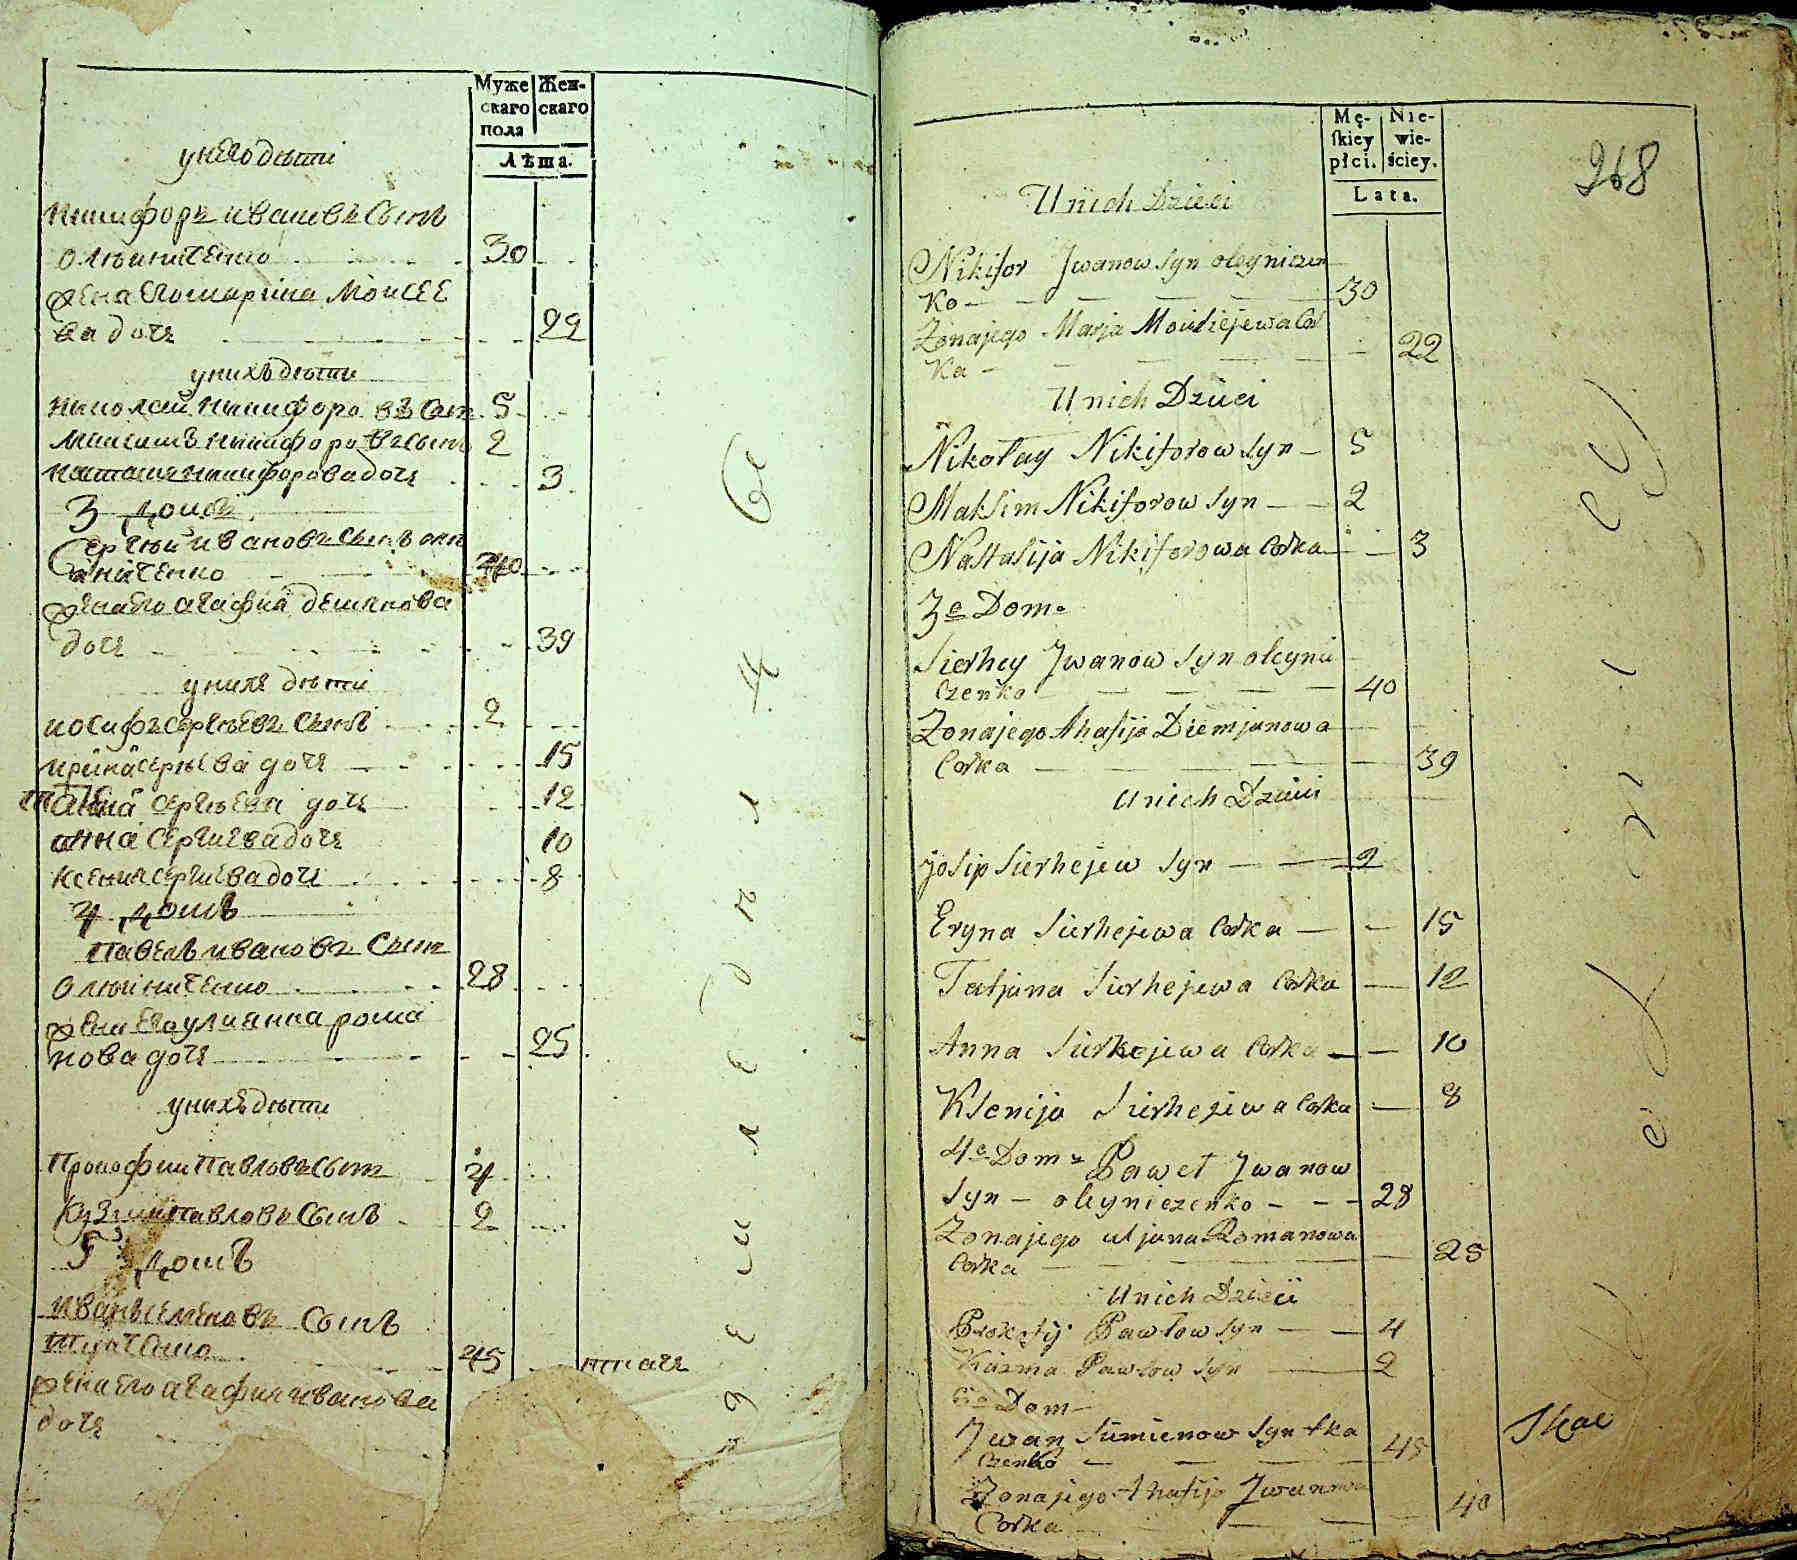 Муже
скаго
пола
Жен-
скаго
Лѣта.
у него дѣти
Никифоръ Ивановъ Сынъ
Олѣиниченко 30
жена его марѣина Моисее
ва дочь 22
у нихъ дѣти
Николай Никифоровъ Сын 5
Максимъ Никифоровъ сынъ 2
Наталия Никифорова дочь 3
3 домъ
Сергѣй Ивановъ Сынъ олѣ
иниченко 40
жена его агафия демянова
дочь 39
у нихъ дѣти
иосифъ сергѣевъ сынъ 2
ирина сергѣева дочь 15
сергѣева дочь 12
анна сергиева дочь 10
ксения сергиева дочь 8
4 домъ
Павелъ ивановъ Сынъ
Олѣиниченко 28
жена его улианна рома
нова дочь 25
у нихъ дѣти
Прокофии Павловъ Сынъ 4
Кузма павловъ Сынъ 2
5 домъ
Иванъ семеновъ Сынъ
Ткаченко 45 ткачь
жена его агафия иванова
дочь
Mę-
ſkiey
płci.
Nie-
wie-
ściey.
Lata.
268
U nich Dzieci
Nikifor Jwanow syn oleyniczen
ko 30
Zonajego Marja Mousiejewa Cor
ka 22
U nich Dzieci
Nikołay Nikiforow syn 5
Maksim Nikiforow syn 2
Nastasija Nikiforowa Corka 3
3e Dom
Sierhey Jwanow syn oleyni
czenko 40
Zonajego Ahafija Diemjanowa
Corka 39
U nich Dzieci
josip Sierhejew syn 2
Eryna Sierhejewa Corka 15
Tatjana Sierhejewa Corka 12
Anna Sierhejewa Corka 10
Ksenija Sierhejewa Corka 8
4e Dom Paweł Jwanow
syn oleyniczenko 28
Zonajego uljana Romanowa
Corka 25
U nich Dzieci
Prokofij Pawłow syn 4
Kuzma Pawłow syn 2
5e Dom
Jwan Siemienow syn tka
czenko 45 Tkac
Zonajego Ahafija Jwanowa
Corka 40